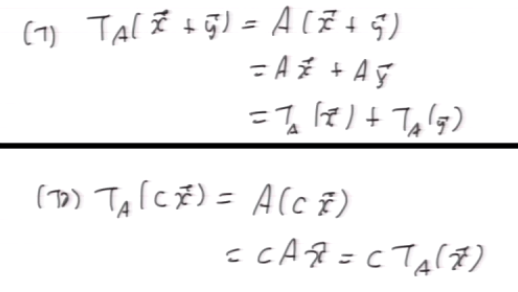 (T1) T_A(x⃗ + y⃗) = A(x⃗ + y⃗)
= Ax⃗ + Ay⃗
= T_A(x⃗) + T_A(y⃗)
(T2) T_A(cx⃗) = A(cx⃗)
= cAx⃗ = cT_A(x⃗)